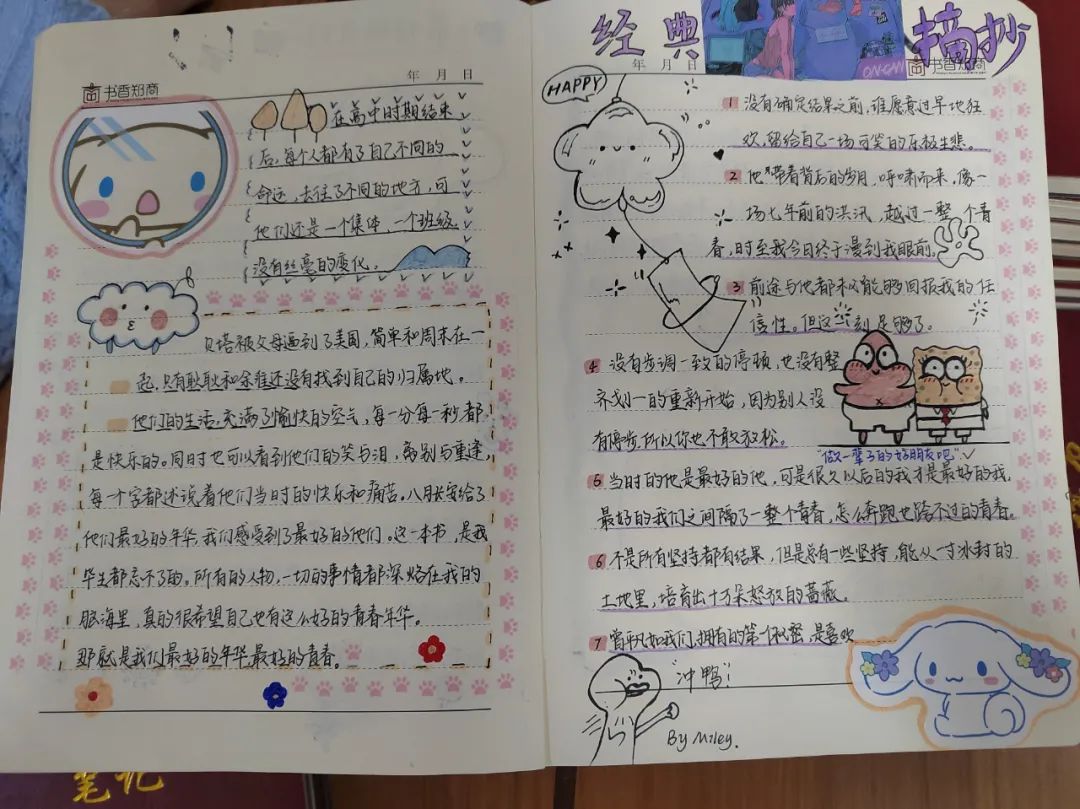 年 月 日
书香知商
在高中时期结束
后,每个人都有了自己不同的
命运,去往了不同的地方,可
他们还是一个集体,一个班级
没有丝毫的变化。
贝塔被父母逼到了美国,简单和周末在一
起,只有耿耿和余淮还没有找到自己的归属地。
他们的生活,充满了愉快的空气,每一分每一秒都
是快乐的。同时也可以看到他们的笑与泪,离别与重逢,
每一个字都述说着他们当时的快乐和痛苦。八月长安给了
他们最好的年华,我们感受到了最好的他们。这一本书,是我
毕生都忘不了的。所有的人物,一切的事情都深烙在我的
脑海里,真的很希望自己也有这么好的青春年华。
那就是我们最好的年华,最好的青春。
经典
摘抄
ON-CAN
年 月 日
书香知商
HAPPY
1 没有确定结果之前,谁愿意过早地狂
欢,留给自己一场可笑的乐极生悲。
2 他带着背后的岁月,呼啸而来,像一
场七年前的洪汛,越过一整个青
春,时至我今日终于漫到我眼前。
3 前途与他都未必能够回报我的任
性。但这一刻足够了。
4 没有步调一致的停顿,也没有整
齐划一的重新开始,因为别人没
有停步,所以你也不敢放松。
"做一辈子的好朋友吧"
5 当时的他是最好的他,可是很久以后的我才是最好的我,
最好的我们之间隔了一整个青春,怎么奔跑也跨不过的青春。
6 不是所有坚持都有结果,但是总有一些坚持,能从一寸冰封的
土地里,培育出十万朵怒放的蔷薇。
7
我们拥有的第一个秘密,是喜欢
"冲鸭!"
By Miley.
笔记